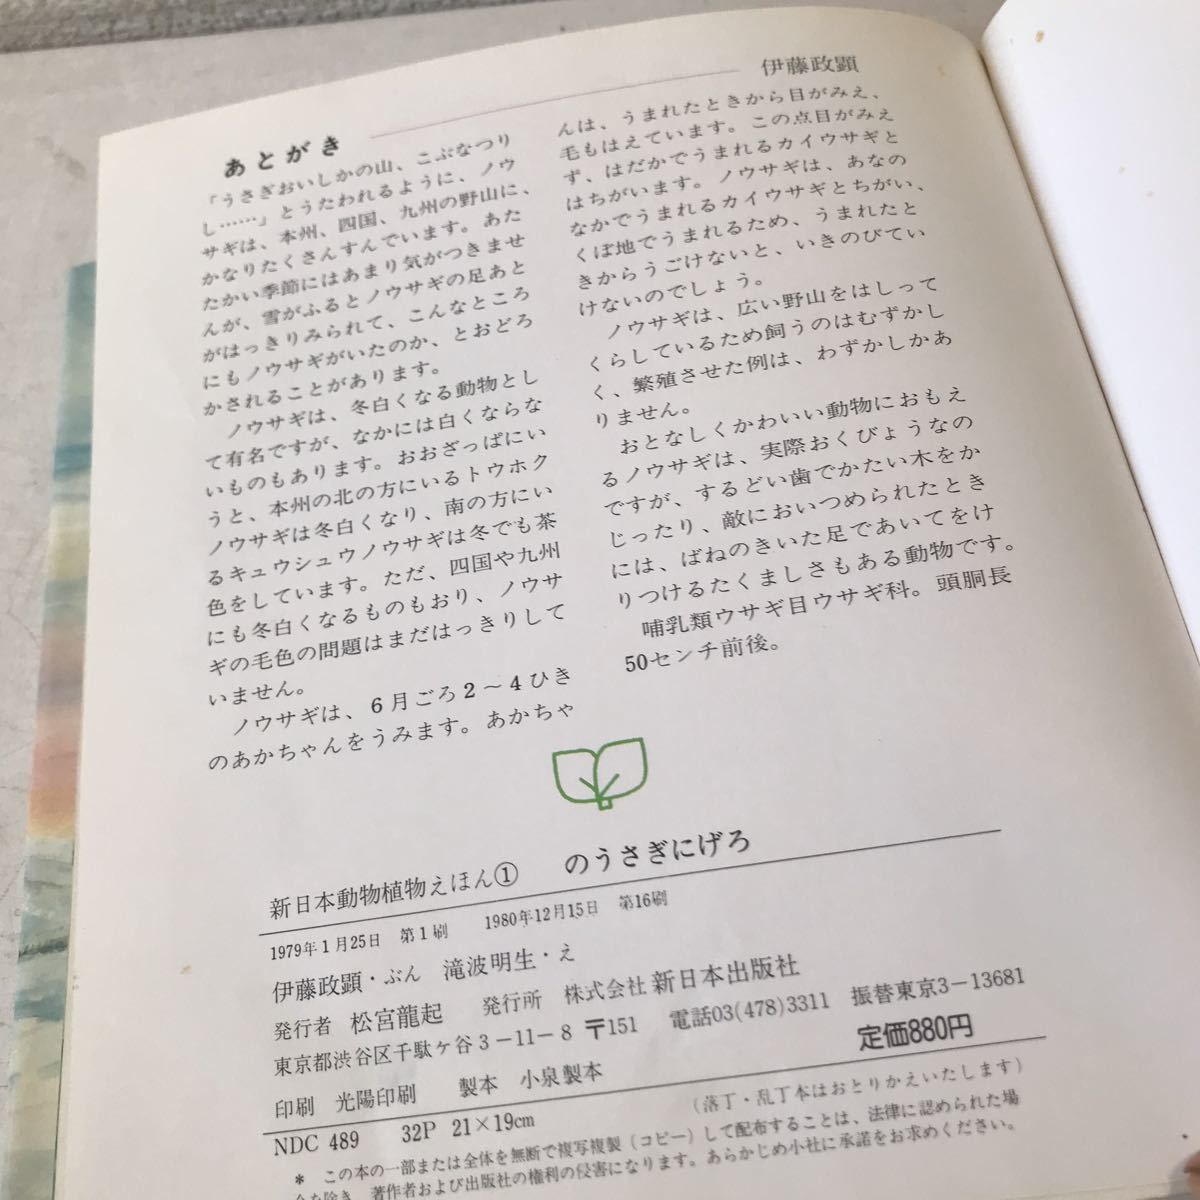 伊藤政顕
あとがき
「うさぎおいしかの山、こぶなつり
し……」とうたわれるように、ノウ
サギは、本州、四国、九州の野山に、
かなりたくさんすんでいます。あた
たかい季節にはあまり気がつきませ
んが、雪がふるとノウサギの足あと
がはっきりみられて、こんなところ
にもノウサギがいたのか、とおどろ
かされることがあります。
ノウサギは、冬白くなる動物とし
て有名ですが、なかには白くならな
いものもあります。おおざっぱにい
うと、本州の北の方にいるトウホク
ノウサギは冬白くなり、南の方にい
るキュウシュウノウサギは冬でも茶
色をしています。ただ、四国や九州
にも冬白くなるものもおり、ノウサ
ギの毛色の問題はまだはっきりして
いません。
ノウサギは、6月ごろ2〜4ひき
のあかちゃんをうみます。あかちゃ
んは、うまれたときから目がみえ、
毛もはえています。この点目がみえ
ず、はだかでうまれるカイウサギと
はちがいます。ノウサギは、あなの
なかでうまれるカイウサギとちがい、
くぼ地でうまれるため、うまれたと
きからうごけないと、いきのびてい
けないのでしょう。
ノウサギは、広い野山をはしって
くらしているため飼うのはむずかし
く、繁殖させた例は、わずかしかあ
りません。
おとなしくかわいい動物におもえ
るノウサギは、実際おくびょうなの
ですが、するどい歯でかたい木をか
じったり、敵においつめられたとき
には、ばねのきいた足であいてをけ
りつけるたくましさもある動物です。
哺乳類ウサギ目ウサギ科。頭胴長
50センチ前後。
新日本動物植物えほん① のうさぎにげろ
1979年1月25日 第1刷 1980年12月15日 第16刷
伊藤政顕・ぶん 滝波明生・え
発行者 松宮龍起 発行所 株式会社新日本出版社
東京都渋谷区千駄ケ谷3-11-8 〒151 電話03(478)3311 振替東京3-13681
定価880円
印刷 光陽印刷 製本 小泉製本
(落丁・乱丁本はおとりかえいたします)
NDC 489 32P 21×19cm
* この本の一部または全体を無断で複写複製(コピー)して配布することは、法律に認められた場
合を除き、著作者および出版社の権利の侵害になります。あらかじめ小社に承諾をお求めください。